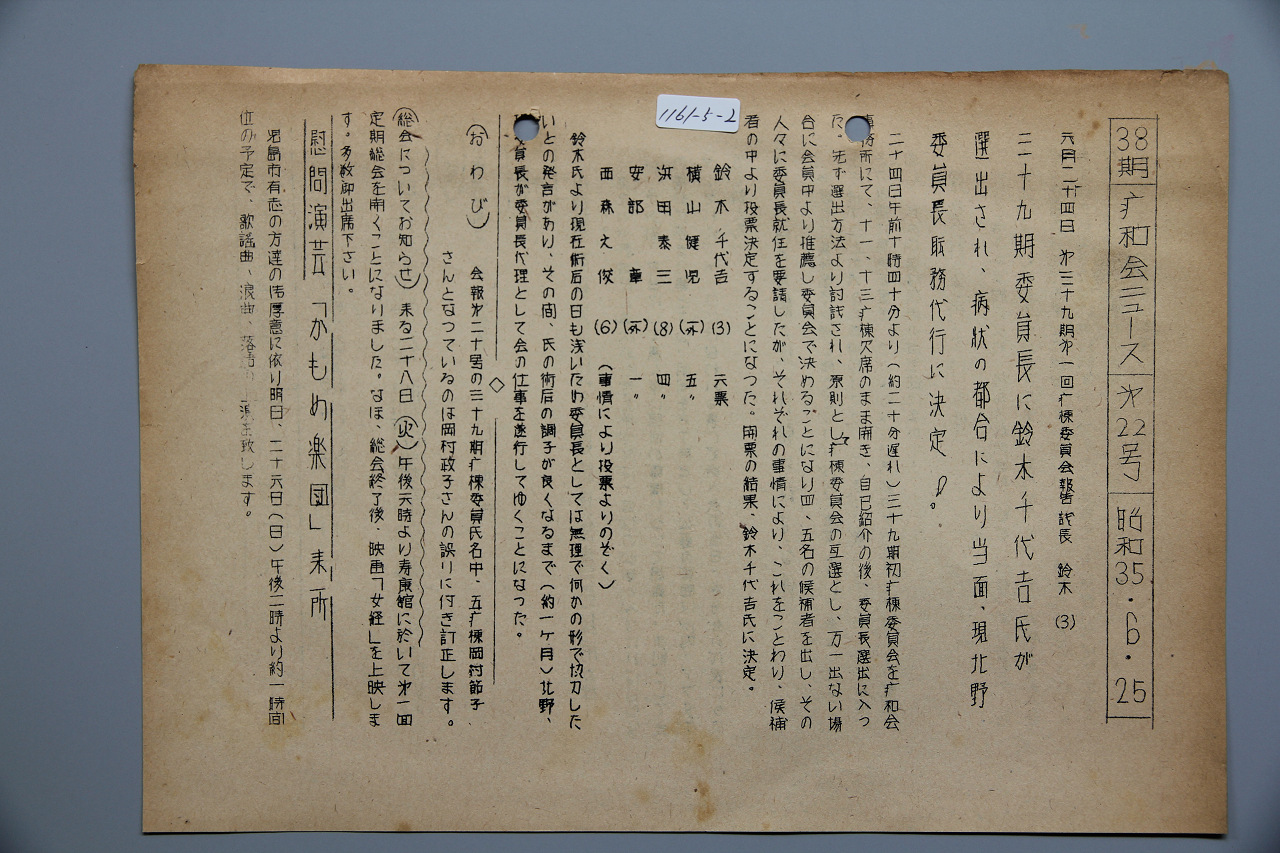 1161-5-2
38期 疒和会ニュース 㐧22号 昭和35・6・25
六月二十四日 㐧三十九期㐧一回疒棟委員会報告 議長 鈴木(3)
三十九期委員長に鈴木千代吉氏が
選出され、病状の都合により当面、現北野
委員長職務代行に決定
二十四日午前十時四十分より(約二十分遅れ)三十九期初疒棟委員会を疒和会
事務所にて、十一、十三疒棟欠席のまま開き、自己紹介の後、委員長選出に入っ
た。先ず選出方法より討議され、原則として疒棟委員会の互選とし、万一出ない場
合に会員中より推薦し委員会で決めることになり四、五名の候補者を出し、その
人々に委員長就任を要請したが、それぞれの事情により、これをことわり、候補
者の中より投票決定することになつた。開票の結果、鈴木千代吉氏に決定。
鈴木千代吉 (3) 六票
横山健児 (外) 五〃
浜田泰三 (8) 四〃
安部章 (外) 一〃
西森文俊 (6) (事情により投票よりのぞく)
鈴木氏より現在術后の日も浅いため委員長としては無理で何かの形で協力した
いとの発言があり、その間、氏の術后の調子が良くなるまで(約一ヶ月)北野、
委員長が委員長代理として会の仕事を遂行してゆくことになつた。
(おわび) 会報㐧二十号の三十九期疒棟委員氏名中、五疒棟岡村節子
さんとなつているのは岡村政子さんの誤りに付き訂正します。
(総会についてお知らせ) 来る二十八日(火)午後六時より寿康館に於いて㐧一回
定期総会を開くことになりました。なほ、総会終了後、映画「女経」を上映しま
す。多数御出席下さい。
慰問演芸「かもめ楽団」来所
児島市有志の方達の御厚意に依り明日、二十六日(日)午後二時より約一時間
位の予定で、歌謡曲、浪曲、落語 致します。